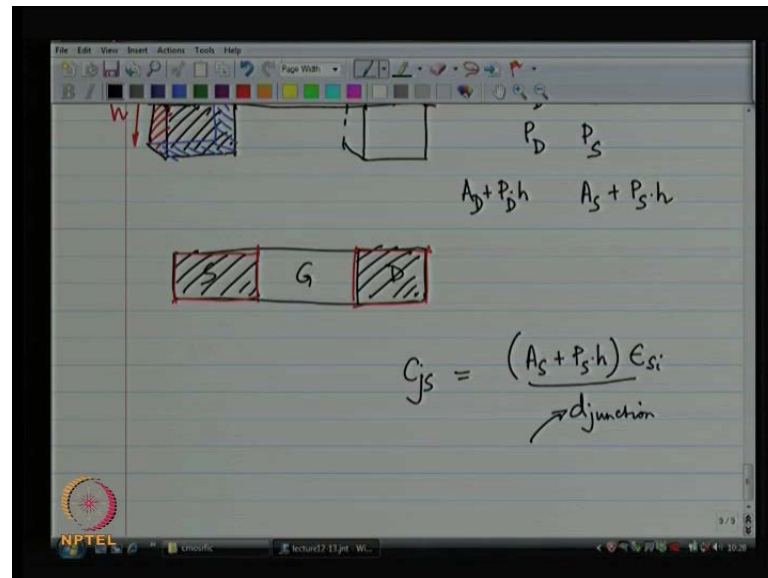 File Edit View Insert Actions Tools Help
Page Width
B I
h
P_D P_S
A_D + P_D·h A_S + P_S·h
S G D
C_js = (A_S + P_S·h) ε_Si
d_junction
NPTEL
9/9
cmosrfic lecture12-13.jnt - Wi... 10:28